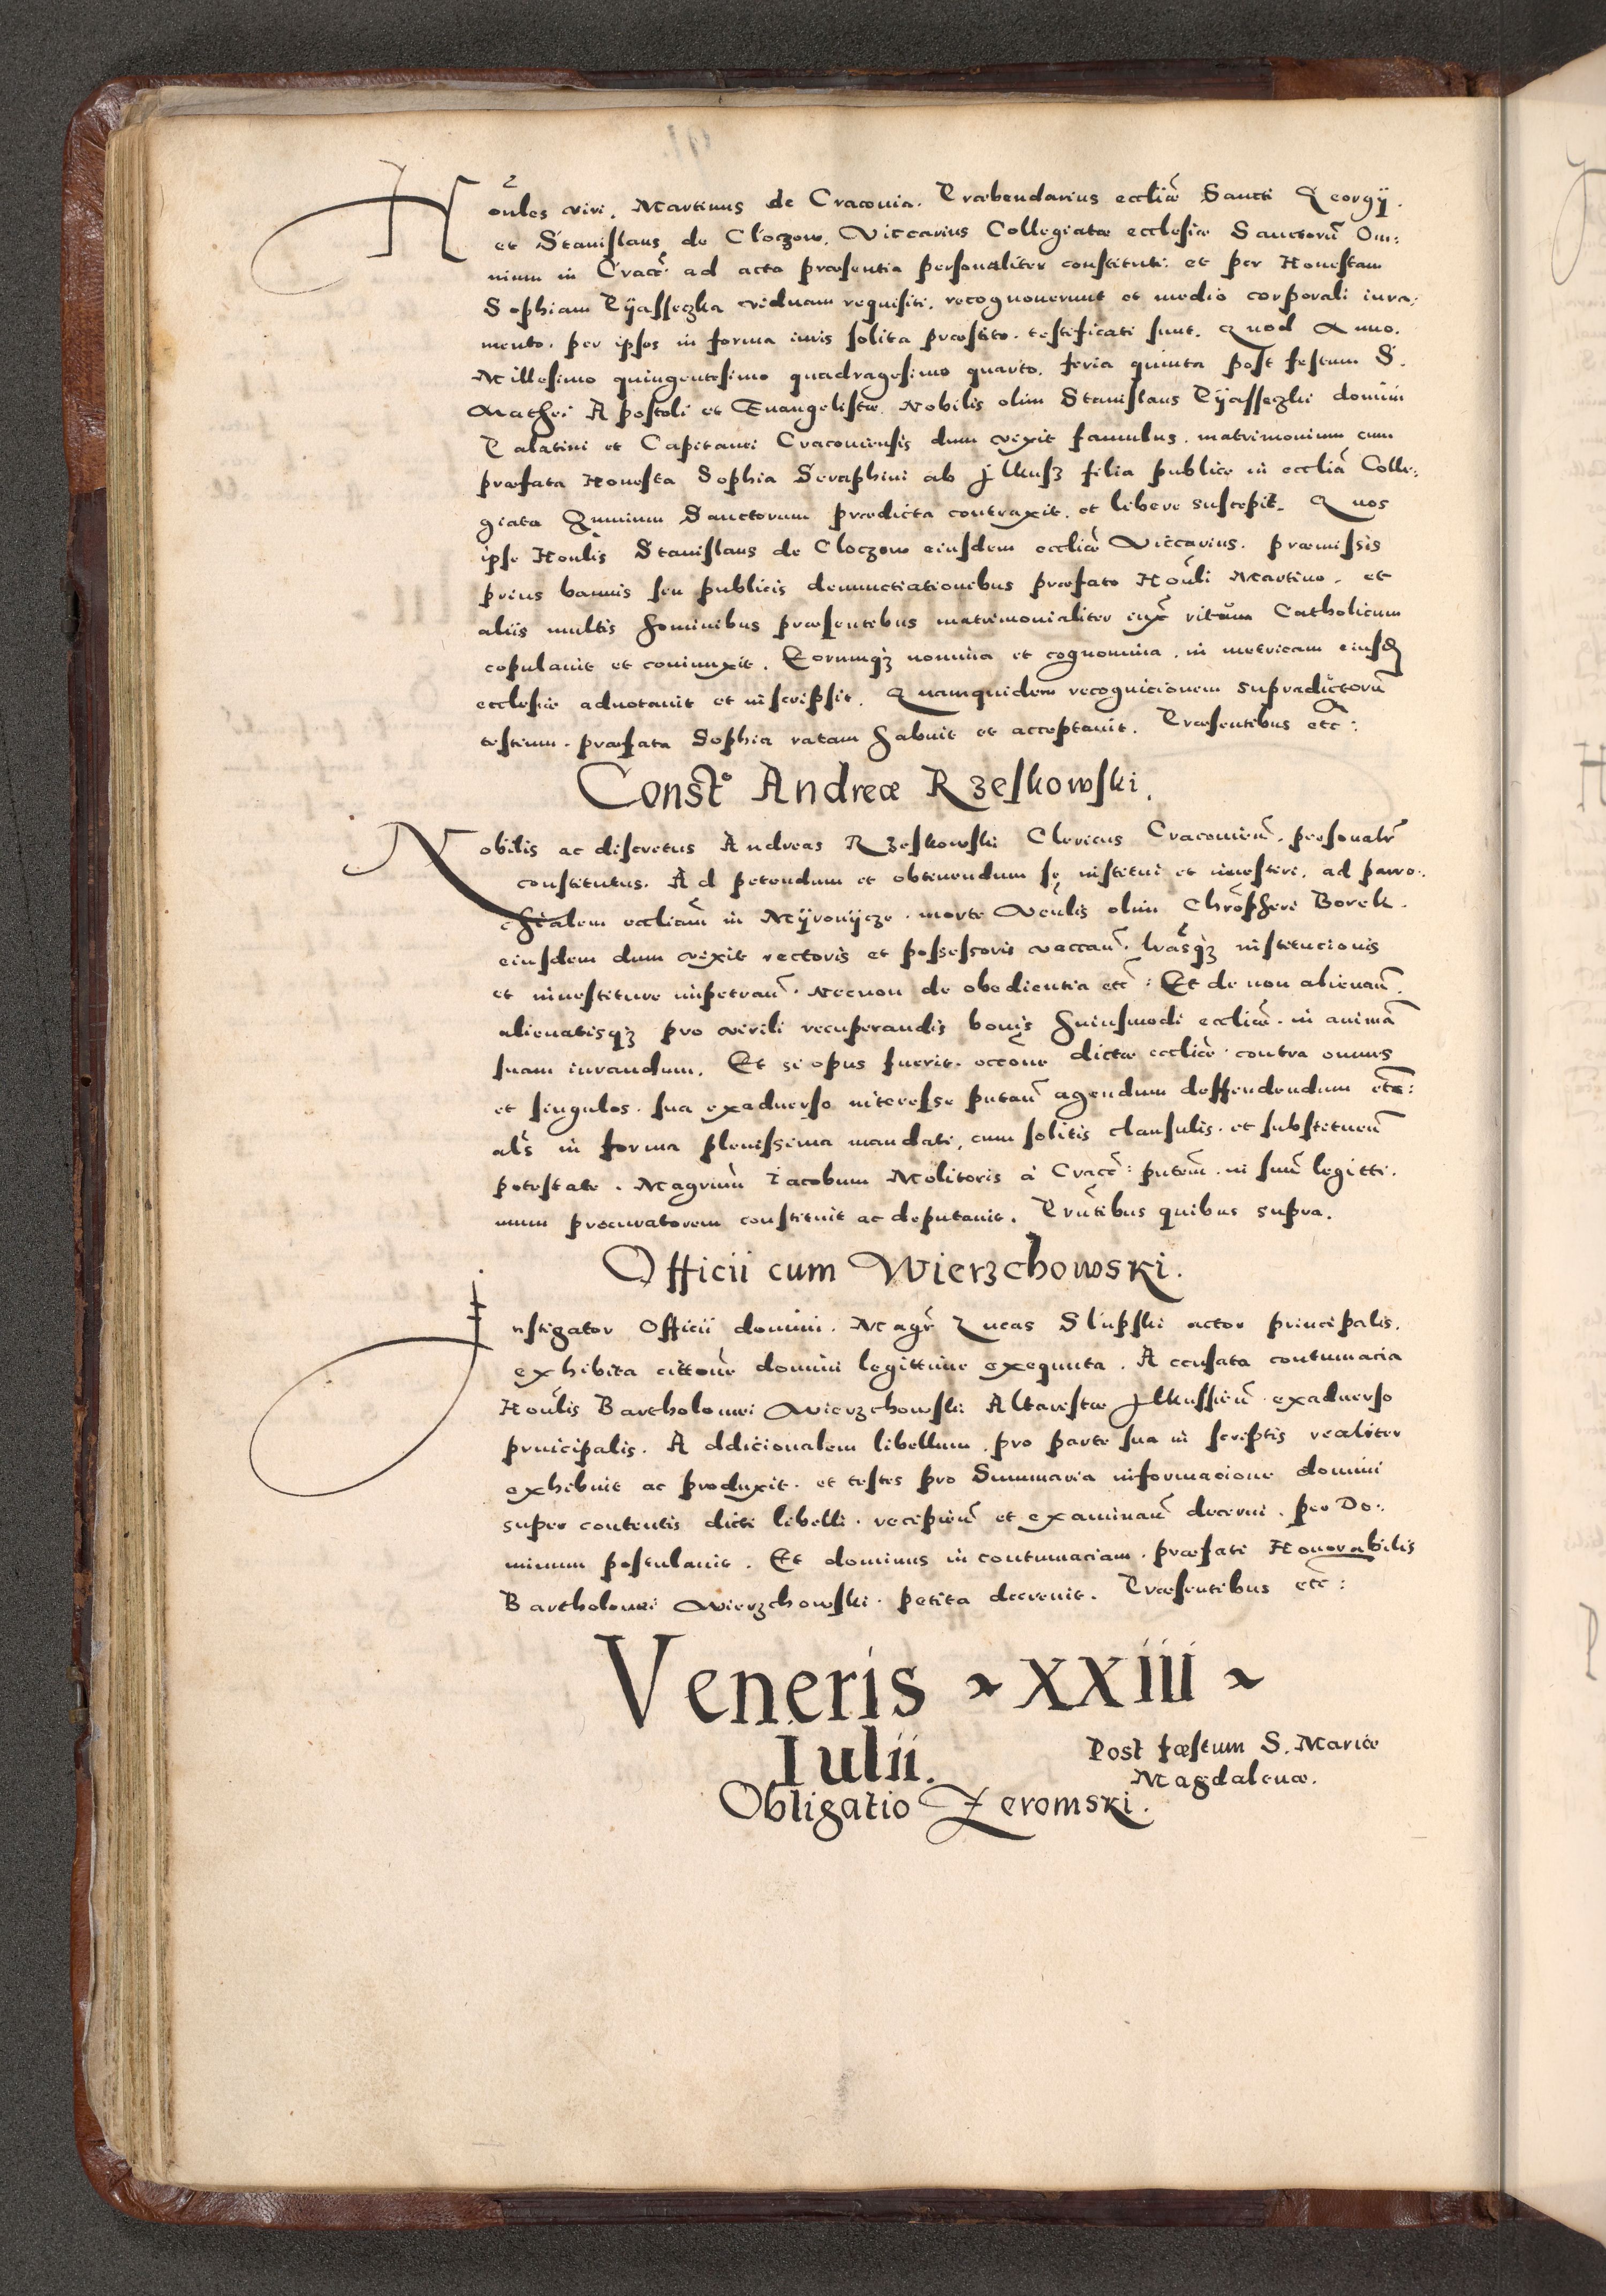 Hon̄les viri. Martinus de Cracouia. Præbendarius eccliæ Sancti Georgÿ.
et Stanislaus de Cloczow. Viccarius Collegiatæ ecclesiæ Sanctorū Om:
nium in Crac̄: ad acta præsentia personaliter constituti: et per Honestam
Sophiam Pÿasseczka viduam requisiti. recognouerunt et medio corporali iura:
mento. per ipsos in forma iuris solita præstito. testificati sunt. Quod Anno.
Millesimo quingentesimo quadragesimo quarto. feria quinta post festum S.
Mathei Apostoli et Euangelistæ. Nobilis olim Stanislaus Pÿasseczki domini
Palatini et Capitanei Cracouiensis dum vixit famulus. matrimonium cum
præfata Honesta Sophia Seraphini ab Jlkusz filia publice in ecclīa Colle:
giata Omnium Sanctorum prædicta contraxit. et libere suscepit. Quos
ipse Honlis Stanislaus de Cloczow eiusdem eccliæ Viccarius. præmissis
prius bannis seu publicis denunctiationibus præfato Hon̄li Martino. et
aliis multis hominibus præsentibus matrimonialiter iux̄ ritum Catholicum
copulauit et coniunxit. Eorumqꝫ nomina et cognomina. in metricam eiusd̄
ecclesiæ adnotauit et inscripsit. Quamquidem recognicionem supradictorū
testium. præfata Sophia ratam habuit et acceptauit. Præsentibus etc̄:
Const° Andreæ Rzeskowski.
Nobilis ac discretus Andreas Rzeskowski Clericus Cracouien̄. personalr̄
constitutus. Ad petendum et obtinendum se institui et inuestiri. ad parro:
chialem eccliam in Mÿronÿcze. morte Ven̄lis olim Chrōpheri Borek.
eiusdem dum vixit rectoris et possessoris vaccan̄. lrāsqꝫ institucionis
et inuestiture impetran̄. Necnon de obedientia etc̄: Et de non alienan̄.
alienatisqꝫ pro virili recuperandis bonis huiusmodi eccliæ. in animā
suam iurandum. Et si opus fuerit. occōne dictæ eccliæ contra omnes
et singulos. sua exaduerso interesse putan̄ agendum deffendendum etc̄:
alr̄s in forma plenissima mandati, cum solitis clausulis. et substituen̄
potestate. Magrum̄ Iacobum Molitoris à Crac̄: pn̄tem̄. in suū legitti.
mum procuratorem constituit ac deputauit. Prn̄tibus quibus supra.
Officii cum Wierzchowski.
Instigator Officii domini. Magr̄ Lucas Slupski actor principalis.
exhibita cittōne domini legittime exequuta. Accusata contumacia
Hon̄lis Bartholomei Wierzchowski Altaristæ Jlkussien̄ exaduerso
principalis. Addicionalem libellum. pro parte sua in scriptis realiter
exhibuit ac produxit. et testes pro Summaria informacione domini
super contentis dicti libelli. recipien̄ et examinan̄ decerni. per Do:
minum postulauit. Et dominus in contumaciam. præfati Honorabilis
Bartholomei Wierzchowski. petita decreuit. Præsentibus etc̄:
Veneris ~ XXIIII ~
Iulii.
Post fæstum S. Mariæ
Magdalenæ.
Obligatio Zeromski.